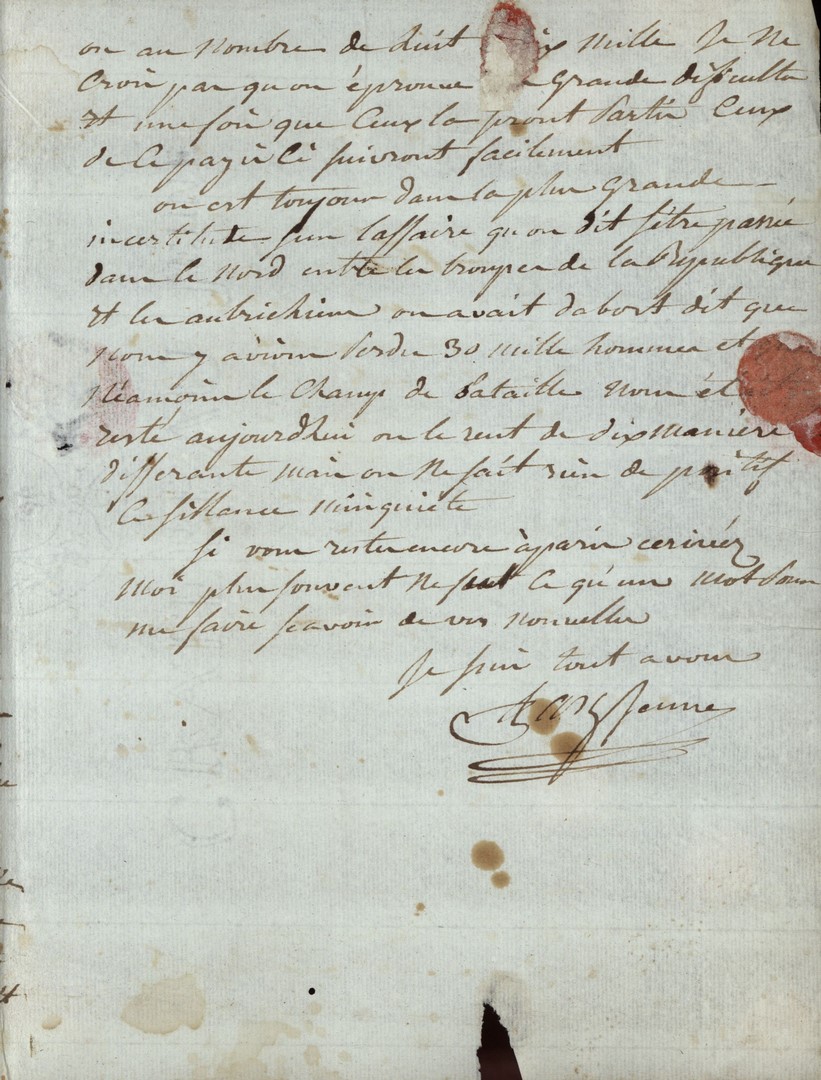 on au nombre de huit mille Je Ne
Crois pas qu'on éprouve grande difficulté
et une fois que Ceux la seront Partis Ceux
de Ce pays Ci suivront facilement
on est toujour dans la plus grande
incertitude sur laffaire qu'on dit s'être passée
dans le Nord entre les troupes de la Republique
et les autrichiens on avait dabort dit que
nous y avions Perdu 30 mille hommes et
Néamoins le Champ de Bataille nous
resté aujourdhui on le rent de dix manière
differante mais on Ne sait rien de positif
Ce sillance m'inquiete
si vous restez encore à paris
moi plus souvent ne fut Ce qu'un mot Pour
me faire scavoir de vos nouvelles
Je suis tout a vous
Jeune